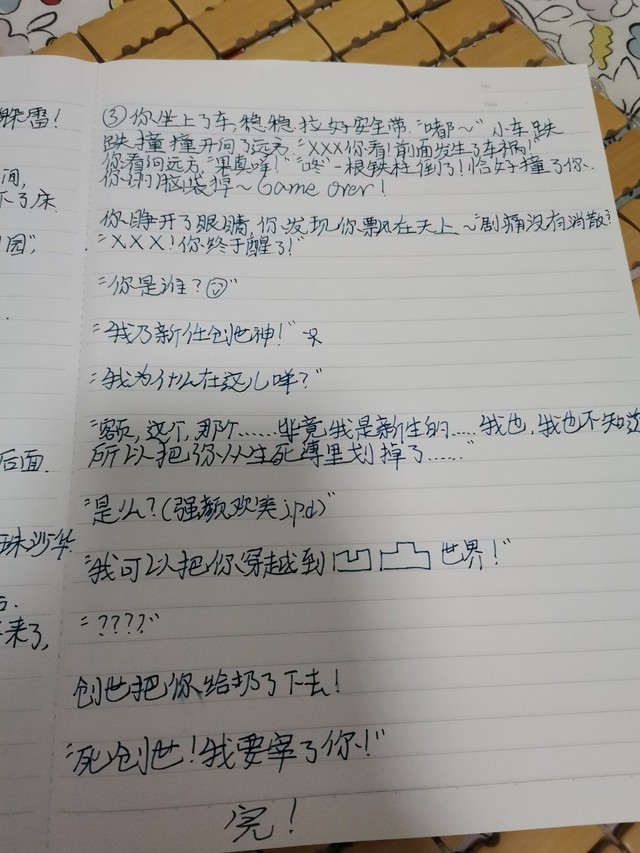 躲雷！
间,
下了床.
园",
后面.
珠沙华.
来了,
③你坐上了车,稳稳拉好安全带."嘟~"小车跌
跌撞撞开向了远方."XXX你看!前面发生了车祸!"
你看向远方"果真哗!""咚"一根铁柱倒了!恰好撞了你.
你的脑袋掉~Game over!
你睁开了眼睛,你发现你飘在天上~剧痛没有消散?
"XXX!你终于醒了!"
"你是谁?"
"我乃新任创世神!"
"我为什么在这儿咩?"
"额,这个,那个......毕竟我是新生的.....我也,我也不知道
所以把你从生死薄里划掉了......"
"是么?(强颜欢笑j.pd)"
"我可以把你穿越到凹凸世界!"
"????"
创世把你给扔了下去!
"死创世!我要宰了你!"
完!